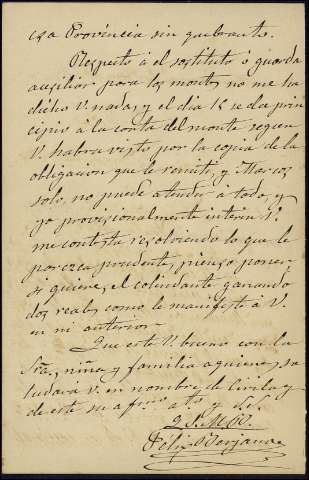 esa Provincia sin quebranto.
Respecto á el sostituto ó guarda
auxiliar para los montes no me ha
dicho V. nada; y el dia 15 se da prin
cipio á la corta del monte segun
V. habra visto por la copia de la
obligacion que le remiti, y Marcos
solo, no puede atender á todo, y
yo provisionalmente interin V.
me contesta resolviendo lo que le
parezca prudente, pienso poner
si quiere, el colindante ganando
dos reales como le manifeste á V.
en mi anterior.
Que este V. bueno con la
Sra., niña y familia a quienes, sa
ludará V. en nombre de Cirila y
de este su afmo. ato. y s.s.
Q.S.M.B.
Felix Berjano